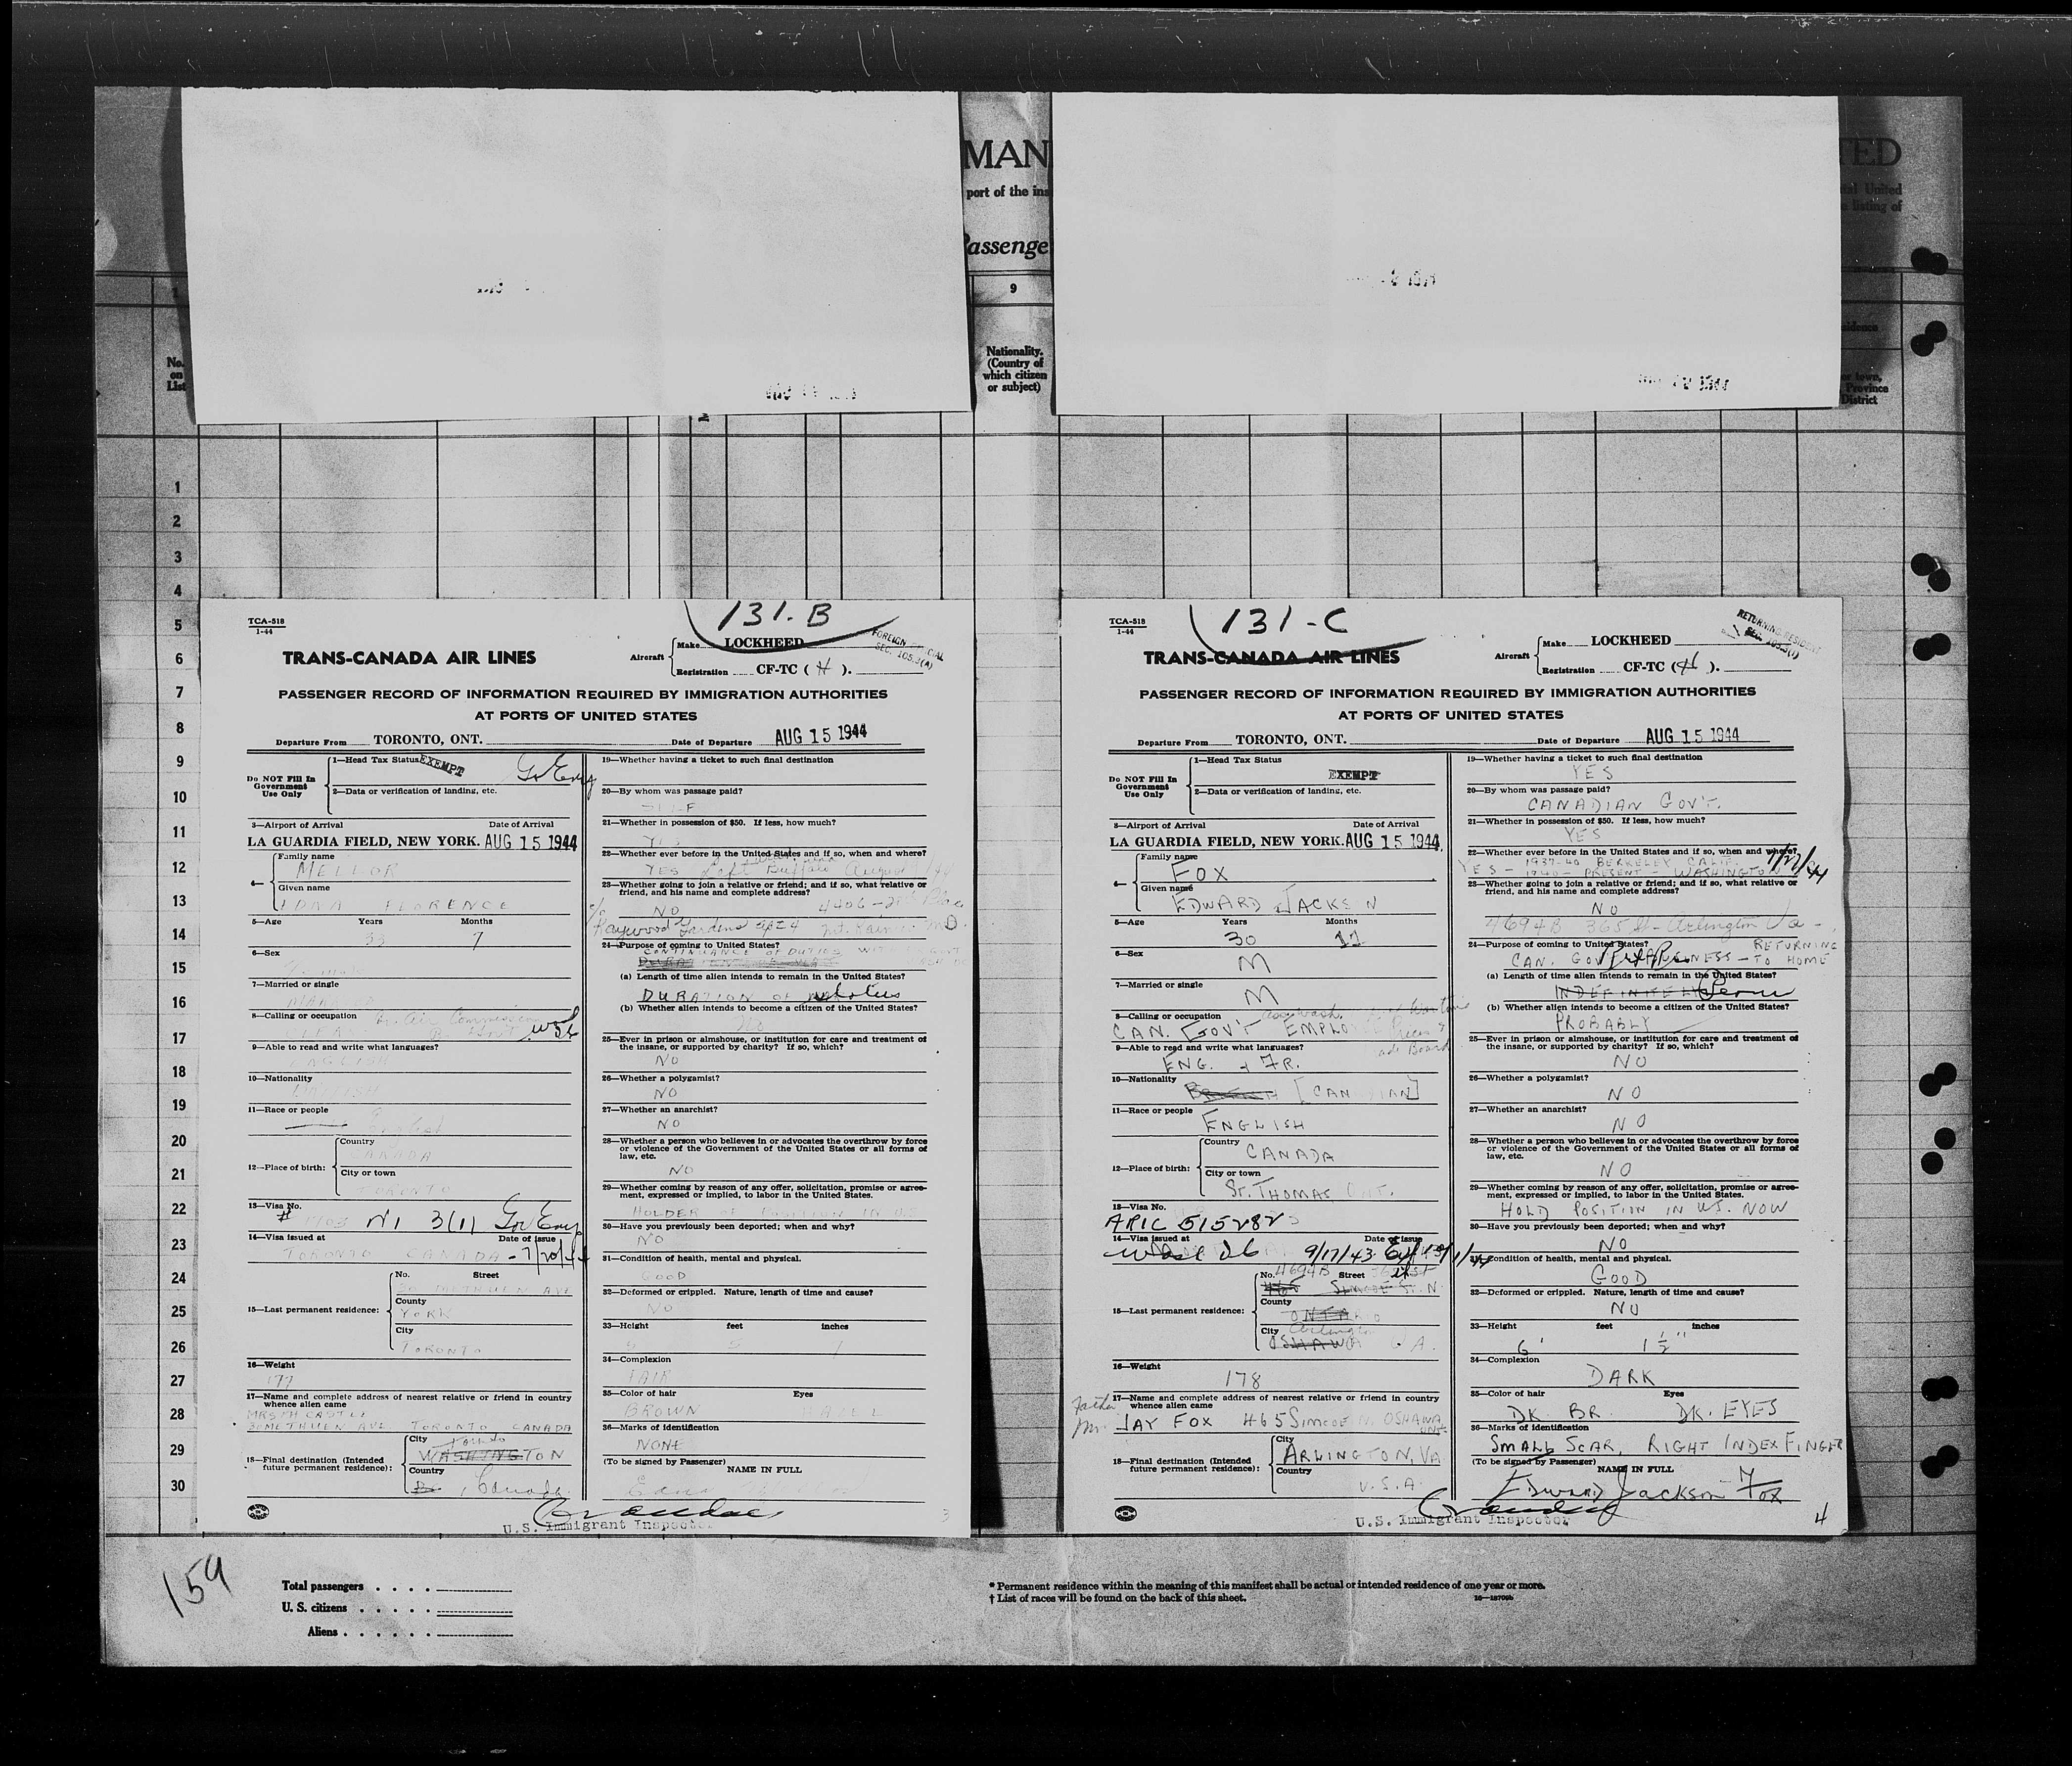 MAN
port of the ins
Passenge
TED
listing of
9
No.
on
List
Nationality.
(Country of
which citizen
or subject)
or town,
Province
District
1
2
3
4
5
6
7
8
9
10
11
12
13
14
15
16
17
18
19
20
21
22
23
24
25
26
27
28
29
30
131-B
TCA-518
1-44
TRANS-CANADA AIR LINES
Aircraft
Make LOCKHEED
Registration CF-TC ( H ).
PASSENGER RECORD OF INFORMATION REQUIRED BY IMMIGRATION AUTHORITIES
AT PORTS OF UNITED STATES
Departure From TORONTO, ONT. Date of Departure AUG 15 1944
Do NOT Fill In
Government
Use Only
1—Head Tax Status EXEMPT
2—Data or verification of landing, etc.
3—Airport of Arrival Date of Arrival
LA GUARDIA FIELD, NEW YORK. AUG 15 1944
4—
Family name
MELLOR
Given name
EDNA FLORENCE
5—Age Years Months
33 7
6—Sex
7—Married or single
8—Calling or occupation
9—Able to read and write what languages?
10—Nationality
11—Race or people
English
12—Place of birth:
Country
CANADA
City or town
TORONTO
13—Visa No.
3(1)
14—Visa issued at Date of issue
TORONTO CANADA - 7/20/44
15—Last permanent residence:
No. Street
METHUEN AVE
County
YORK
City
TORONTO
16—Weight
177
17—Name and complete address of nearest relative or friend in country
whence alien came
METHUEN AVE TORONTO CANADA
18—Final destination (Intended
future permanent residence):
City
Toronto
WASHINGTON
Country
Canada
19—Whether having a ticket to such final destination
20—By whom was passage paid?
SELF
21—Whether in possession of $50. If less, how much?
YES
22—Whether ever before in the United States and if so, when and where?
YES Left Buffalo August
23—Whether going to join a relative or friend; and if so, what relative or
friend, and his name and complete address?
NO 4406-
Kaywood Gardens Mt. Rainier MD.
24—Purpose of coming to United States?
CONTINUANCE OF DUTIES
(a) Length of time alien intends to remain in the United States?
DURATION OF status
(b) Whether alien intends to become a citizen of the United States?
NO
25—Ever in prison or almshouse, or institution for care and treatment of
the insane, or supported by charity? If so, which?
NO
26—Whether a polygamist?
NO
27—Whether an anarchist?
NO
28—Whether a person who believes in or advocates the overthrow by force
or violence of the Government of the United States or all forms of
law, etc.
NO
29—Whether coming by reason of any offer, solicitation, promise or agree-
ment, expressed or implied, to labor in the United States.
HOLDER OF POSITION IN US
30—Have you previously been deported; when and why?
NO
31—Condition of health, mental and physical.
GOOD
32—Deformed or crippled. Nature, length of time and cause?
NO
33—Height feet inches
34—Complexion
FAIR
35—Color of hair Eyes
BROWN HAZEL
36—Marks of identification
NONE
(To be signed by Passenger)
NAME IN FULL
U.S. Immigrant Inspector
3
131-C
TCA-518
1-44
TRANS-CANADA AIR LINES
Aircraft
Make LOCKHEED
Registration CF-TC ( H ).
RETURNING RESIDENT
PASSENGER RECORD OF INFORMATION REQUIRED BY IMMIGRATION AUTHORITIES
AT PORTS OF UNITED STATES
Departure From TORONTO, ONT. Date of Departure AUG 15 1944
Do NOT Fill In
Government
Use Only
1—Head Tax Status
EXEMPT
2—Data or verification of landing, etc.
3—Airport of Arrival Date of Arrival
LA GUARDIA FIELD, NEW YORK. AUG 15 1944
4—
Family name
FOX
Given name
EDWARD JACKSON
5—Age Years Months
30 11
6—Sex
M
7—Married or single
M
8—Calling or occupation
CAN. GOV'T EMPLO
9—Able to read and write what languages?
ENG. & FR.
10—Nationality
[CANADIAN]
11—Race or people
ENGLISH
12—Place of birth:
Country
CANADA
City or town
ST. THOMAS ONT.
13—Visa No.
14—Visa issued at Date of issue
Wash DC 9/17/43
15—Last permanent residence:
No. 4694B Street
SIMCOE ST. N.
County
ONTARIO
City Arlington
OSHAWA VA.
16—Weight
178
17—Name and complete address of nearest relative or friend in country
whence alien came
Father
Mr. JAY FOX 465 SIMCOE N. OSHAWA
ONT.
18—Final destination (Intended
future permanent residence):
City
ARLINGTON, VA
Country
U.S.A.
19—Whether having a ticket to such final destination
YES
20—By whom was passage paid?
CANADIAN GOV'T.
21—Whether in possession of $50. If less, how much?
YES
22—Whether ever before in the United States and if so, when and where?
1937-40 BERKELEY CALIF.
YES - 1940- PRESENT - WASHINGTON
23—Whether going to join a relative or friend; and if so, what relative or
friend, and his name and complete address?
NO
4694B 36 St- Arlington Va -
24—Purpose of coming to United States?
RETURNING
CAN. GOV'T BUSINESS - TO HOME
(a) Length of time alien intends to remain in the United States?
INDEFINITELY Perm
(b) Whether alien intends to become a citizen of the United States?
PROBABLY
25—Ever in prison or almshouse, or institution for care and treatment of
the insane, or supported by charity? If so, which?
NO
26—Whether a polygamist?
NO
27—Whether an anarchist?
NO
28—Whether a person who believes in or advocates the overthrow by force
or violence of the Government of the United States or all forms of
law, etc.
NO
29—Whether coming by reason of any offer, solicitation, promise or agree-
ment, expressed or implied, to labor in the United States.
HOLD POSITION IN U.S. NOW
30—Have you previously been deported; when and why?
NO
31—Condition of health, mental and physical.
GOOD
32—Deformed or crippled. Nature, length of time and cause?
NO
33—Height feet inches
6' 1 1/2"
34—Complexion
DARK
35—Color of hair Eyes
DK BR. DK. EYES
36—Marks of identification
SMALL SCAR, RIGHT INDEX FINGER
(To be signed by Passenger)
NAME IN FULL
Edward Jackson Fox
U.S. Immigrant Inspector
4
159
Total passengers
U. S. citizens
Aliens
* Permanent residence within the meaning of this manifest shall be actual or intended residence of one year or more.
† List of races will be found on the back of this sheet.